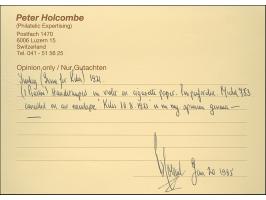 Peter Holcombe
(Philatelic Expertising)
Postfach 1470
6006 Luzern 15
Switzerland
Tel. 041 - 51 56 25
Opinion only / Nur Gutachten
1921.
Handstamped in violet on cigarette paper. Imperforate. Michel
cancelled on an envelope 1921 is in my opinion genuine
Jan 20 1985